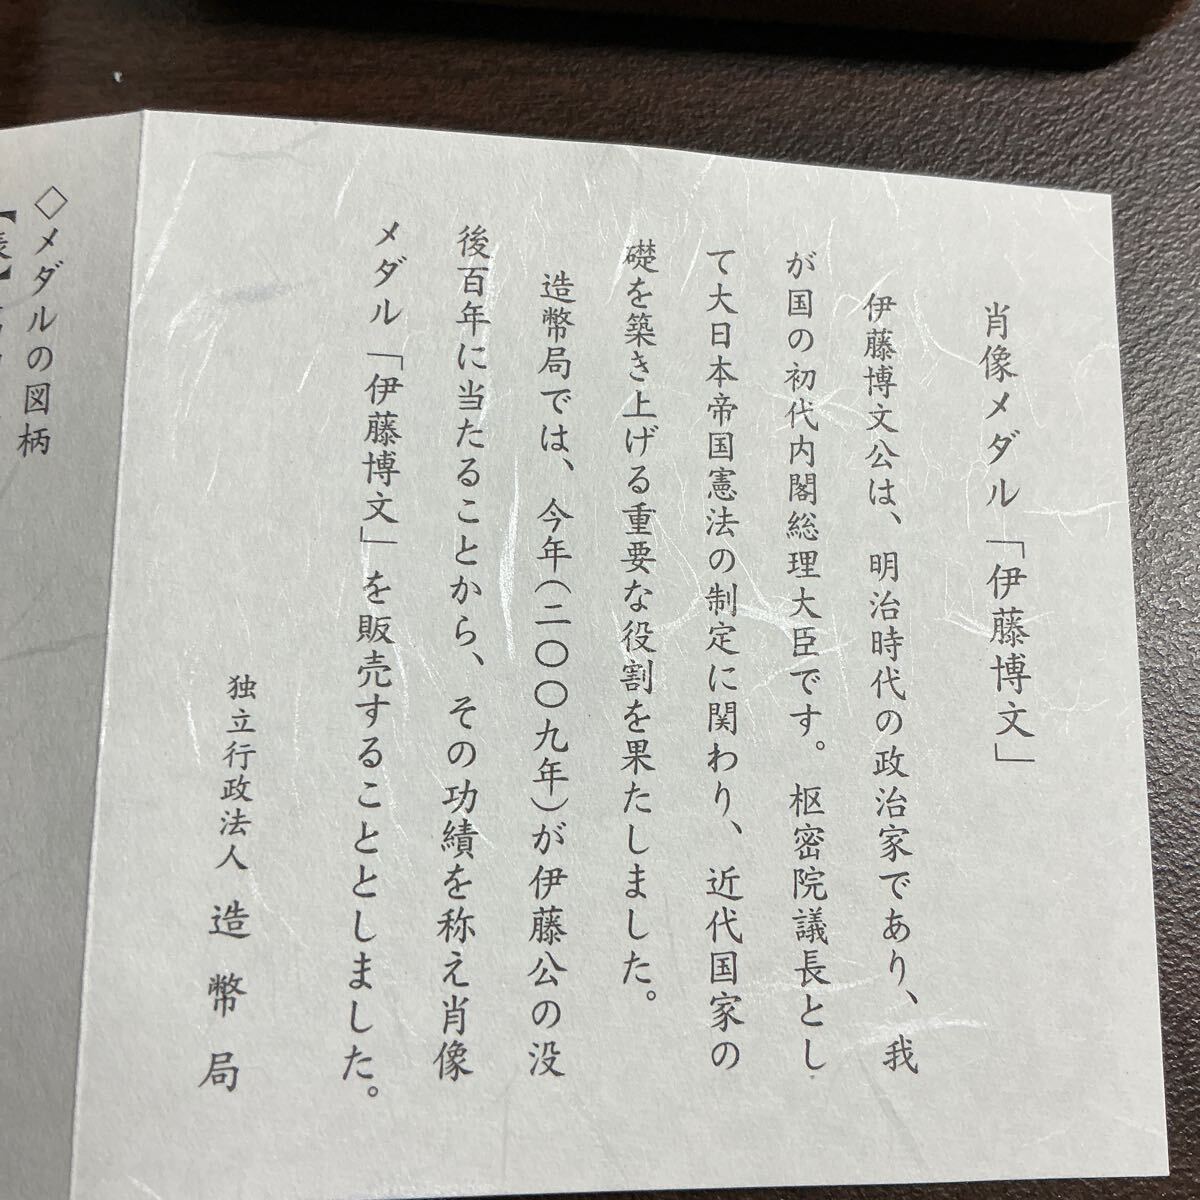 肖像メダル「伊藤博文」
伊藤博文公は、明治時代の政治家であり、我
が国の初代内閣総理大臣です。枢密院議長とし
て大日本帝国憲法の制定に関わり、近代国家の
礎を築き上げる重要な役割を果たしました。
造幣局では、今年(二〇〇九年)が伊藤公の没
後百年に当たることから、その功績を称え肖像
メダル「伊藤博文」を販売することとしました。
独立行政法人 造幣局
◇メダルの図柄
【表】